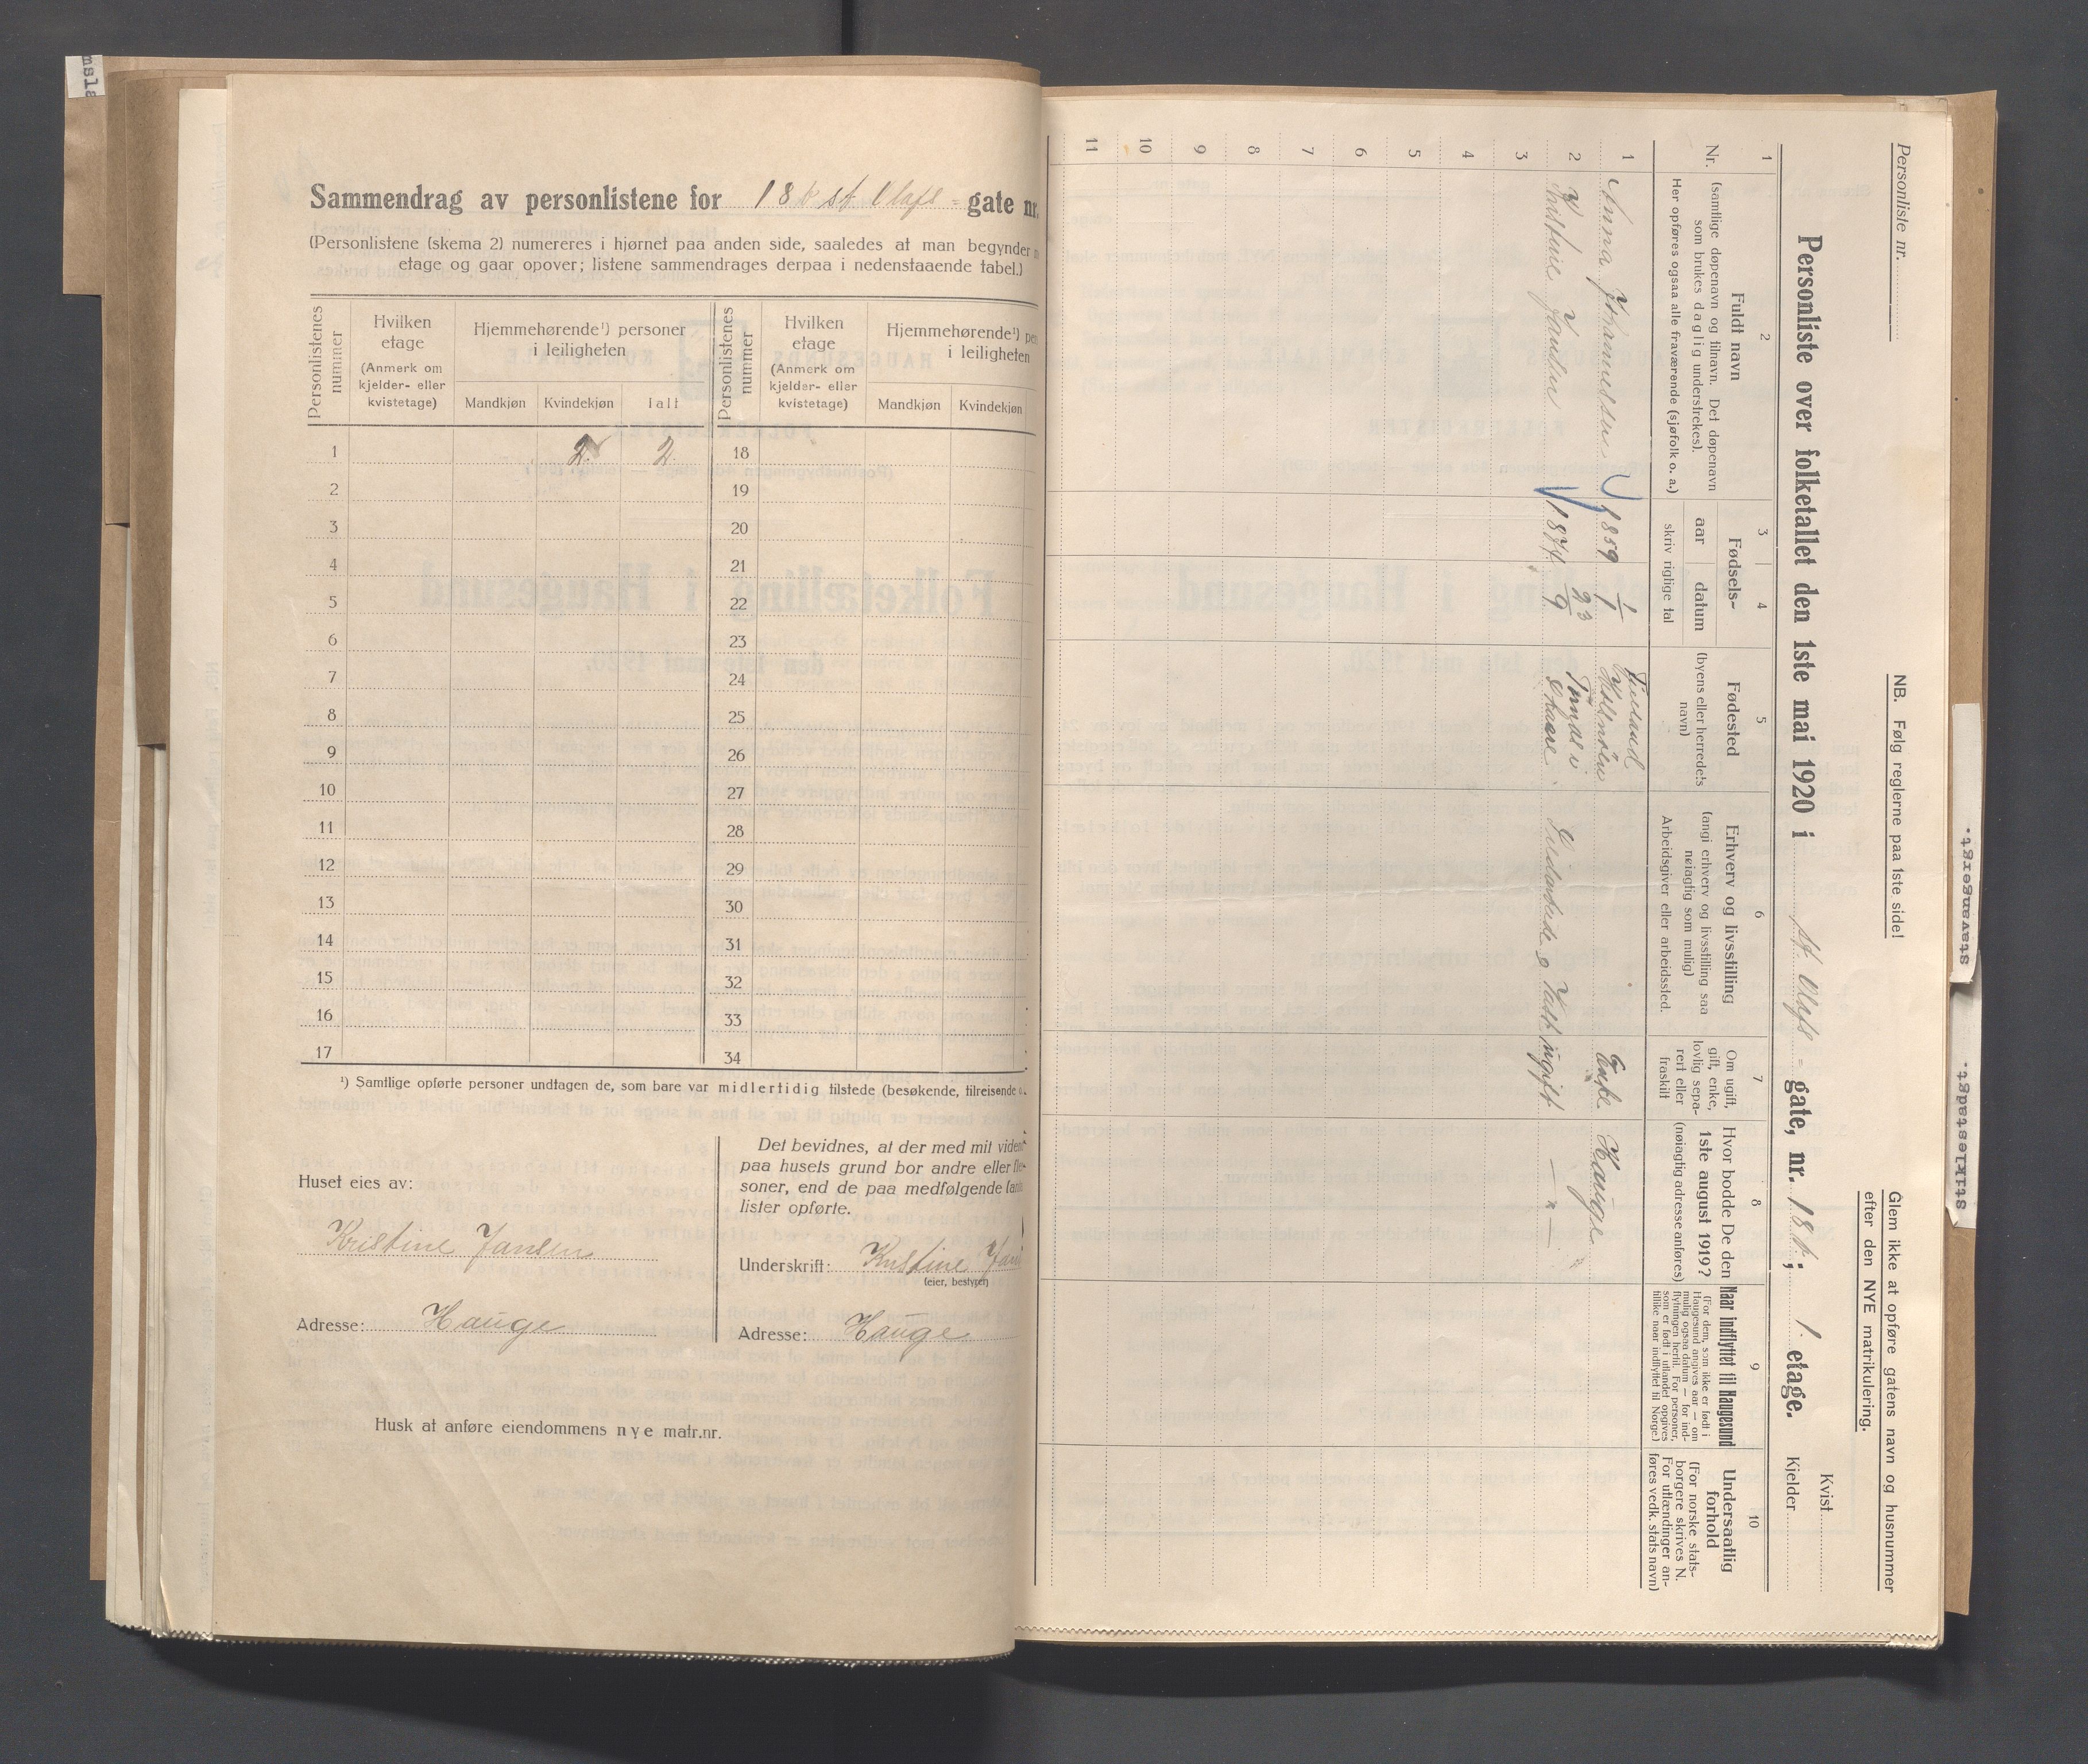 Sammendrag av personlistene for 18b st. Olafs - gate nr.
(Personlistene (skema 2) numereres i hjørnet paa anden side, saaledes at man begynder
etage og gaar opover; listene sammendrages derpaa i nedenstaaende tabel.)
Personlistenes nummer
Hvilken etage (Anmerk om kjelder- eller kvistetage)
Hjemmehørende¹) personer i leiligheten
Mandkjøn Kvindekjøn Ialt
Personlistenes nummer
Hvilken etage (Anmerk om kjelder- eller kvistetage)
Hjemmehørende¹) per
i leiligheten
Mandkjøn Kvindekjøn
1 2. 2. 18
2 19
3 20
4 21
5 22
6 23
7 24
8 25
9 26
10 27
11 28
12 29
13 30
14 31
15 32
16 33
17 34
¹) Samtlige opførte personer undtagen de, som bare var midlertidig tilstede (besøkende, tilreisende o.
Huset eies av:
Kristine Jansen
Adresse: Hauge
Det bevidnes, at der med mit viden
paa husets grund bor andre eller fle-
soner, end de paa medfølgende
lister opførte.
Underskrift: Kristine Jan
(eier, bestyrer)
Adresse: Hauge
Husk at anføre eiendommens nye matr.nr.
Personliste nr.
NB. Følg reglerne paa 1ste side!
Glem ikke at opføre gatens navn og husnummer
efter den NYE matrikulering.
Personliste over folketallet den 1ste mai 1920 i st. Olafs - gate, nr. 18b; 1. etage.
Kvist
Kjelder
1 2 3 4 5 6 7 8 9 10
Nr.
Fuldt navn
(samtlige døpenavn og tilnavn. Det døpenavn
som brukes daglig understrekes).
Her opføres ogsaa alle fraværende (sjøfolk o. a.)
Fødsels-
aar datum
skriv rigtige tal
Fødested
(byens eller herredets
navn)
Erhverv og livsstilling
(angi erhverv og livsstilling saa
nøiagtig som mulig)
Arbeidsgiver eller arbeidssted.
Om ugift,
gift, enke,
lovlig sepa-
rert eller
fraskilt
Hvor bodde De den
1ste august 1919?
(nøiagtig adresse anføres)
Naar indflyttet til Haugesund
(For dem, som ikke er født i
Haugesund angives aar — om
mulig ogsaa datum — for ind-
flytningen hertil. For personer,
som er født i utlandet opgives
tillike naar indflyttet til Norge.)
Undersaatlig
forhold
(For norske stats-
borgere skrives N.
For utlændinger an-
føres vedk. stats navn)
1 Anna Johannessen 1859 1/1 Enke Hauge
2 Kristine Jansen 1874 23/9 Skaare ugift — " —
3
4
5
6
7
8
9
10
11
Stavangergt.
Stiklestadgt.